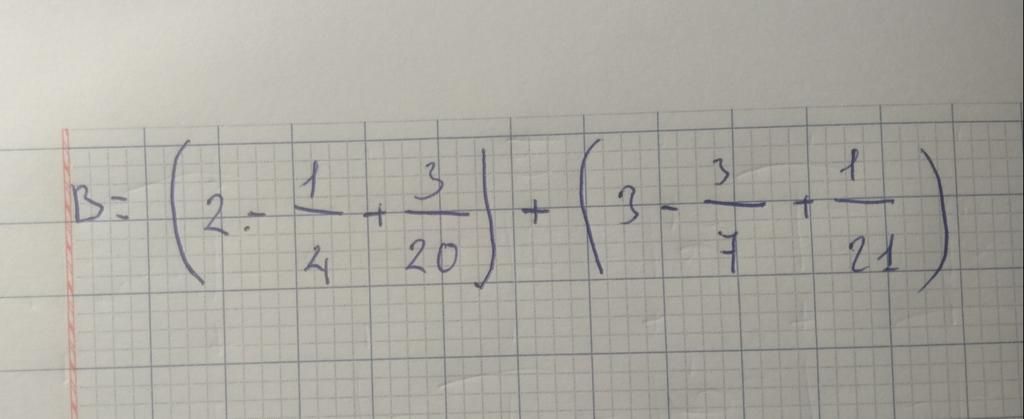 B = (2 - 1/4 + 3/20) + (3 - 3/7 + 1/21)